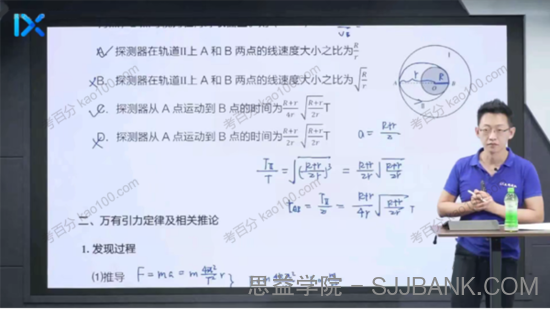 A. 探测器在轨道II上 A 和 B 两点的线速度大小之比为R/r
B. 探测器在轨道II上 A 和 B 两点的线速度大小之比为√(R/r)
C. 探测器从 A 点运动到 B 点的时间为(R+r)/(4r) √((R+r)/(2r)) T
D. 探测器从 A 点运动到 B 点的时间为(R+r)/(2r) √((R+r)/(2r)) T
a = (R+r)/2
TⅡ/T = √((R+r)/2r)³ = (R+r)/2r √((R+r)/2r)
tAB = TⅡ/2 = (R+r)/4r √((R+r)/2r) T
二、万有引力定律及相关推论
1. 发现过程
(1)推导 F = ma = m 4π²/T² r
考百分 kao100.com
思益学院 - SJJBANK.COM